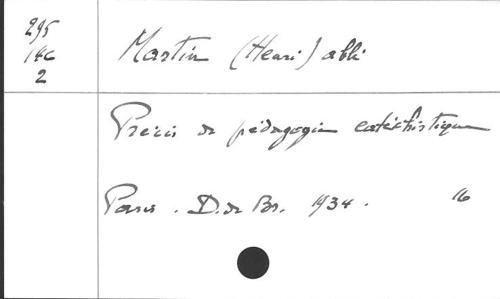 295
146
2
Martin (Henri) abbé
Précis de pédagogie catéchistique
Paris. D. de Br. 1934.
16